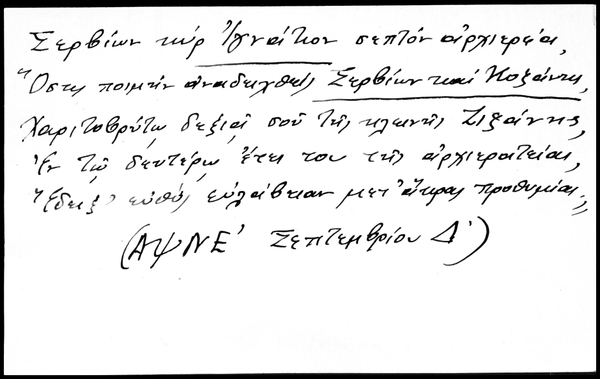 Σερβίων κύρ Ἰγνάτιον σεπτόν ἀρχιερέα,
Ὅστις ποιμήν ἀναδειχθείς Σερβίων καί Κοζάνης,
Χαριτοβρύτῳ δεξιᾷ σοῦ τῆς κλεινῆς Ζιζάνης,
Ἐν τῷ δευτέρῳ ἔτει του τῆς ἀρχιερατείας,
Ἔδειξ' εὐθύς εὐλάβειαν μετ' ἄκρας προθυμίας.
(ΑΨΝΕ' Σεπτεμβρίου Δ')